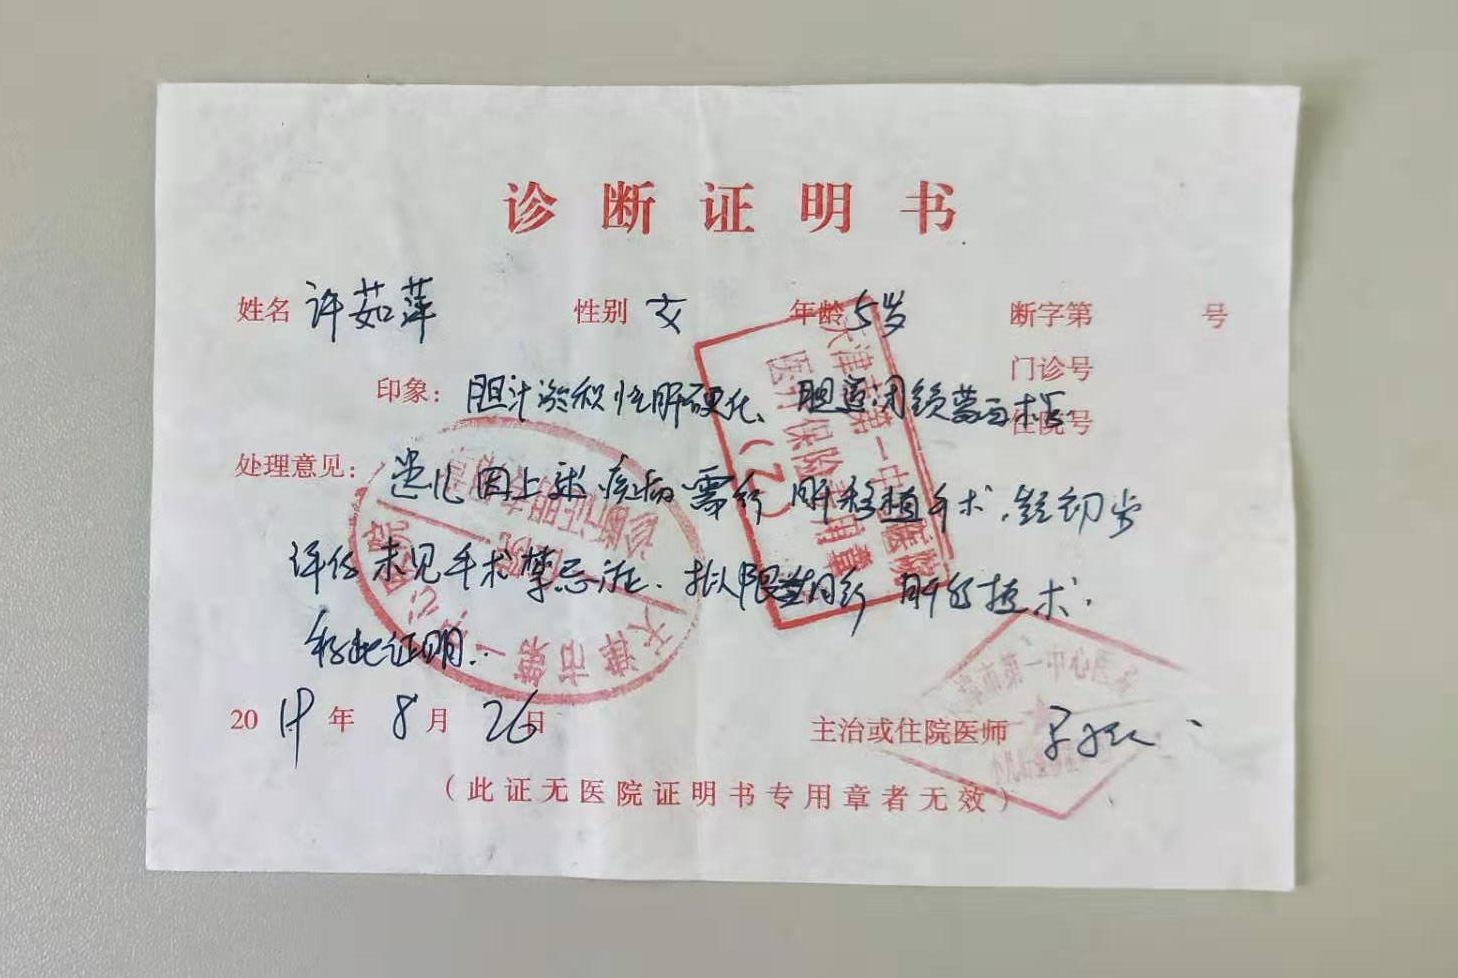 诊断证明书
姓名 许茹萍 性别 女 年龄 5岁 断字第 号
门诊号
印象: 胆汁淤积性肝硬化、胆道闭锁葛西术后. 住院号
处理意见: 患儿因上述疾病需行肝移植手术,经初步
评估未见手术禁忌症.拟限期行肝移植术.
特此证明.
2019年 8月 26日 主治或住院医师
(此证无医院证明书专用章者无效)
天津市第一中心医院
诊断证明专用章
天津市第一中心医院
医疗保险专用章
(2)
天津市第一中心医院